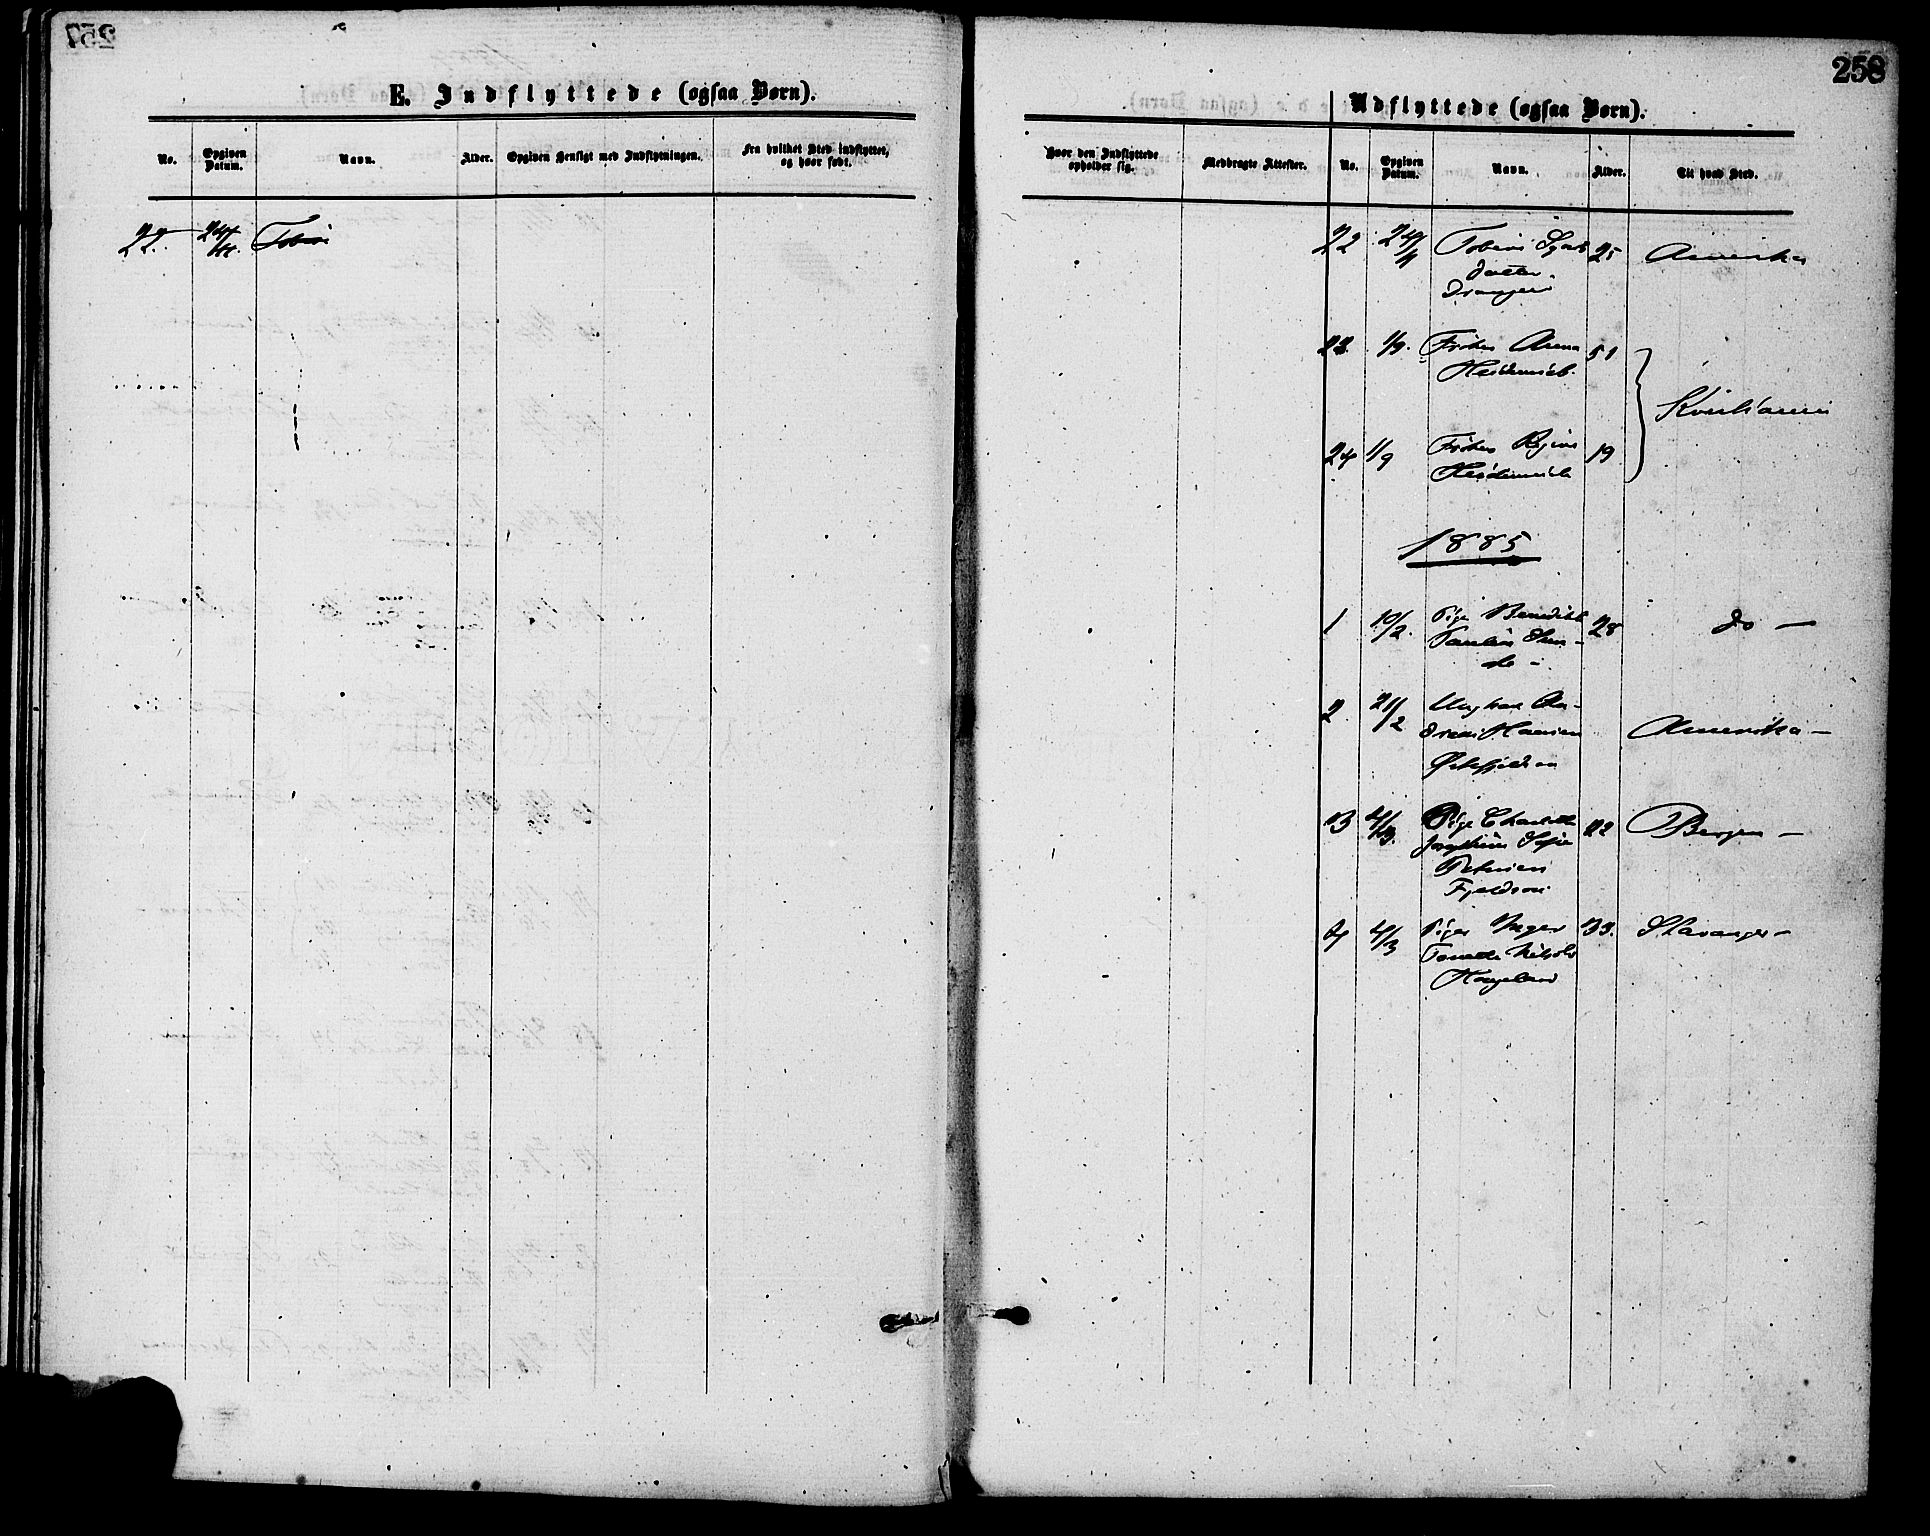 258
E. Indflyttede (ogsaa Børn).
No.
Opgiven Datum.
Navn.
Alder.
Opgiven Hensigt med Indflytningen.
Fra hvilket Sted indflyttet, og hvor født.
22. 24/11. Tobine
Udflyttede (ogsaa Børn).
Hvor den Indflyttede opholder sig.
Medbragte Attester.
No.
Opgiven Datum.
Navn.
Alder.
Til hvad Sted.
22 24/11 Tobine 25 Amerika
datter
23. 1/9. Frøken Anna 51
Heidenreich.
Kristiania
24 1/9 Frøken Regine 19
Heidenreich
1885
1 10/2. Pige 28 do —
2 21/2 Ungkarl An-
dreas Hansen Amerika —
3 4/3. Pige Charlotte 22 Bergen —
Josephine Sofie
Petersen
4 4/3 Pige Inger 33. Stavanger —
Tonette
Hageland